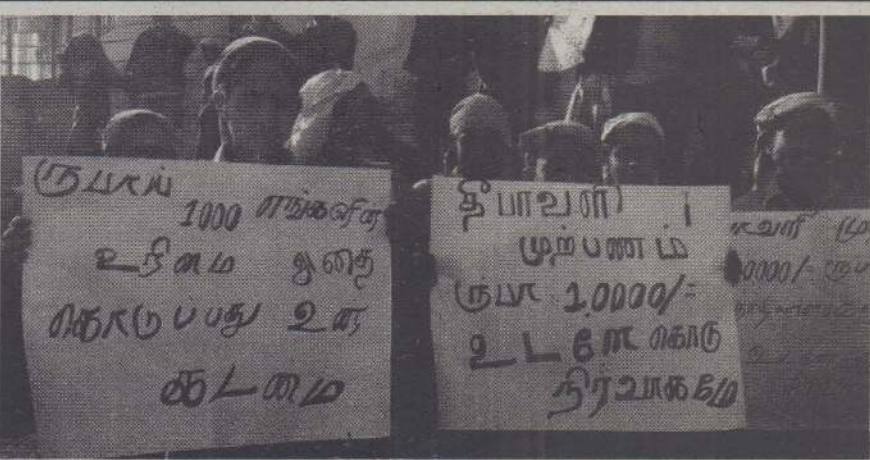 ரூபாய்
1000 எங்களின்
உரிமை இதை
கொடுப்பது உன்
கடமை
தீபாவளி
முற்பணம்
ரூபா 10000/=
உடனே கொடு
நிர்வாகமே
0000/= ரூபா